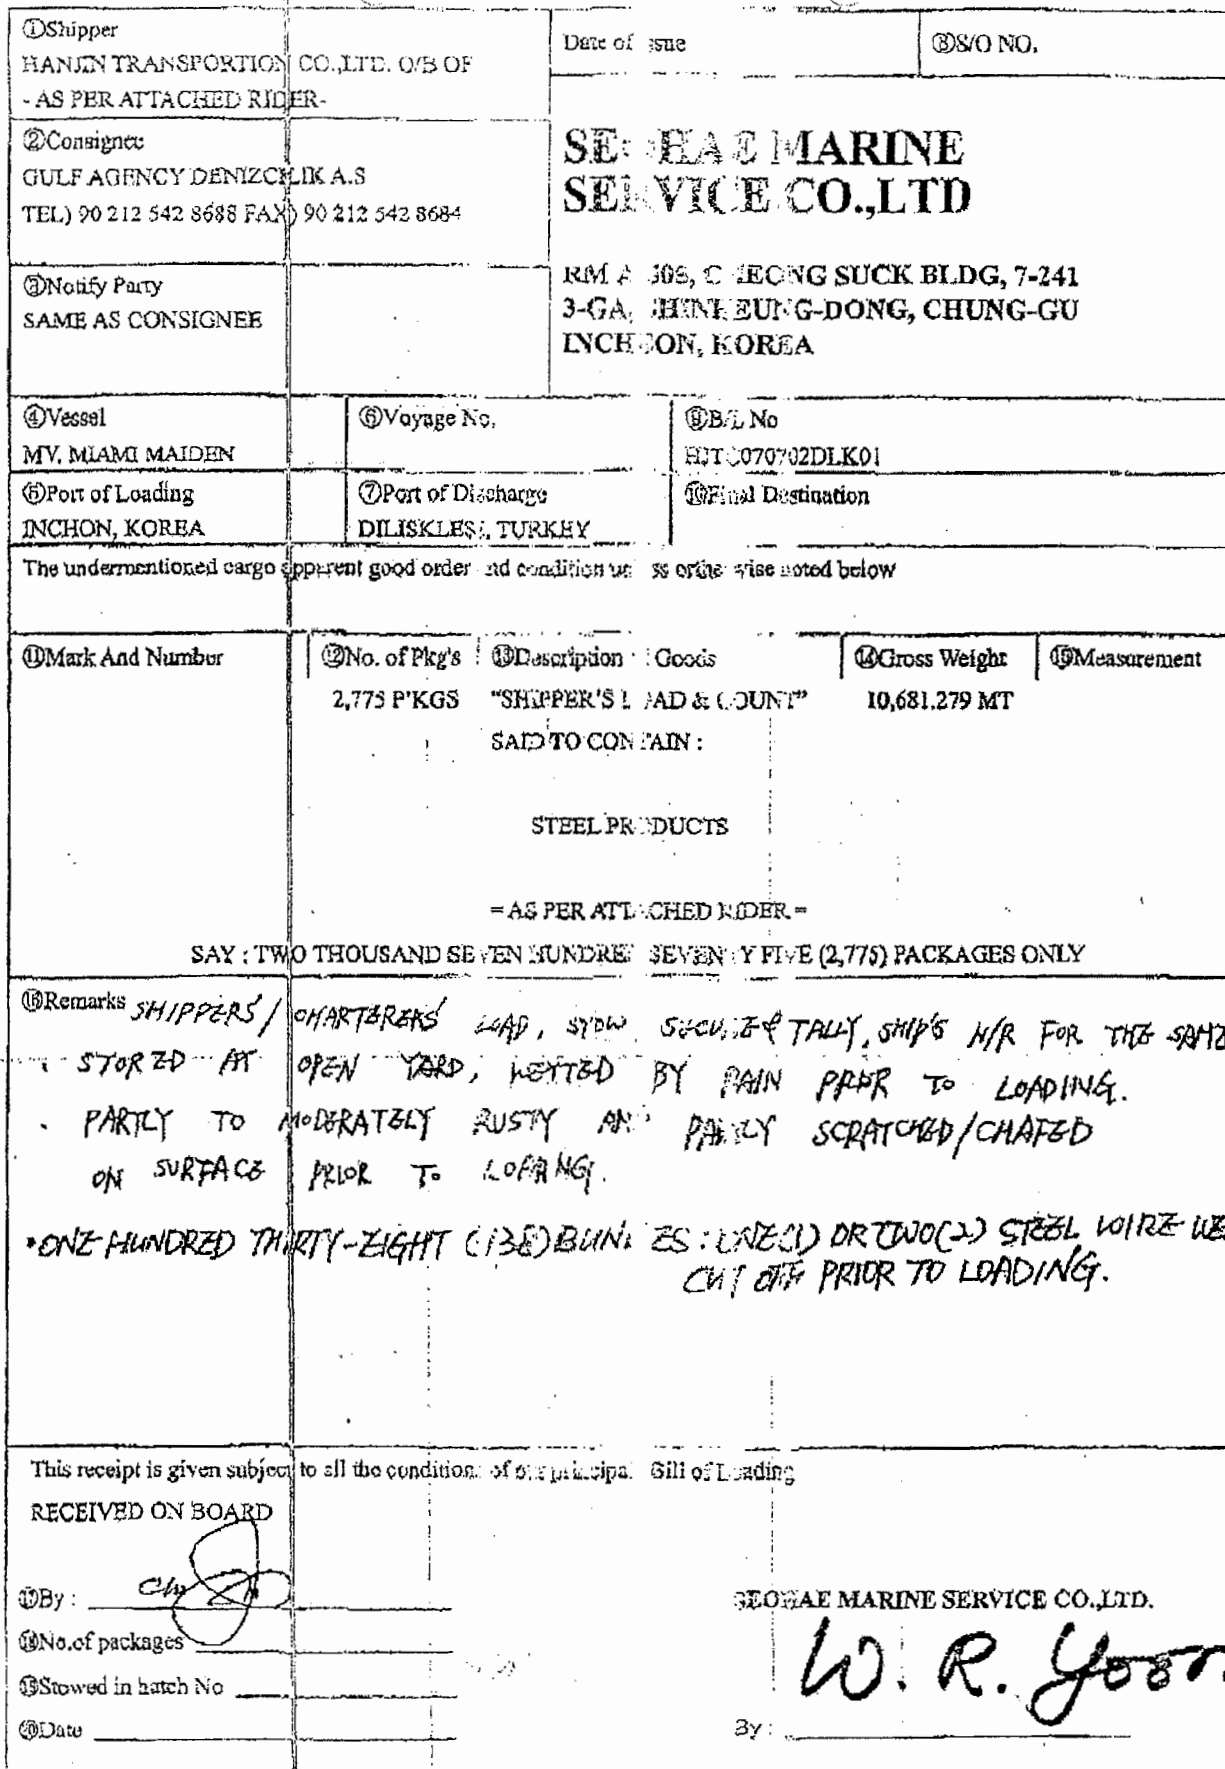 ①Shipper
HANJIN TRANSPORTION CO.,LTD. O/B OF
- AS PER ATTACHED RIDER-
Date of issue
⑧S/O NO.
②Consignee
GULF AGENCY DENIZCILIK A.S
TEL) 90 212 542 8688 FAX) 90 212 542 8684
SEOHAE MARINE
SERVICE CO.,LTD
③Notify Party
SAME AS CONSIGNEE
RM 308, CHEONG SUCK BLDG, 7-241
3-GA, SHINHEUNG-DONG, CHUNG-GU
INCHEON, KOREA
④Vessel
MV. MIAMI MAIDEN
⑥Voyage No.
⑨B/L No
HJTC070702DLK01
⑤Port of Loading
INCHON, KOREA
⑦Port of Discharge
DILISKLESI, TURKEY
⑩Final Destination
The undermentioned cargo apparent good order and condition unless ortherwise noted below
⑪Mark And Number
⑫No. of Pkg's
⑬Description Goods
⑭Gross Weight
⑮Measurement
2,775 P'KGS "SHIPPER'S LOAD & COUNT" 10,681.279 MT
SAID TO CONTAIN :
STEEL PRODUCTS
= AS PER ATTACHED RIDER =
SAY : TWO THOUSAND SEVEN HUNDRED SEVENTY FIVE (2,775) PACKAGES ONLY
⑯Remarks SHIPPERS'/CHARTERERS' LOAD, STOW, SECURE & TALLY, SHIP'S N/R FOR THE SAME
STORED AT OPEN YARD, WETTED BY RAIN PRIOR TO LOADING.
PARTLY TO MODERATELY RUSTY AND PARTLY SCRATCHED/CHAFED
ON SURFACE PRIOR TO LOADING.
•ONE HUNDRED THIRTY-EIGHT (138) BUNDLES : ONE(1) OR TWO(2) STEEL WIRE WE
CUT OFF PRIOR TO LOADING.
This receipt is given subject to all the conditions of our principal Gill of Loading
RECEIVED ON BOARD
⑰By :
SEOHAE MARINE SERVICE CO.,LTD.
⑱No.of packages
W. R. Yoon
⑲Stowed in hatch No
⑳Date
By :